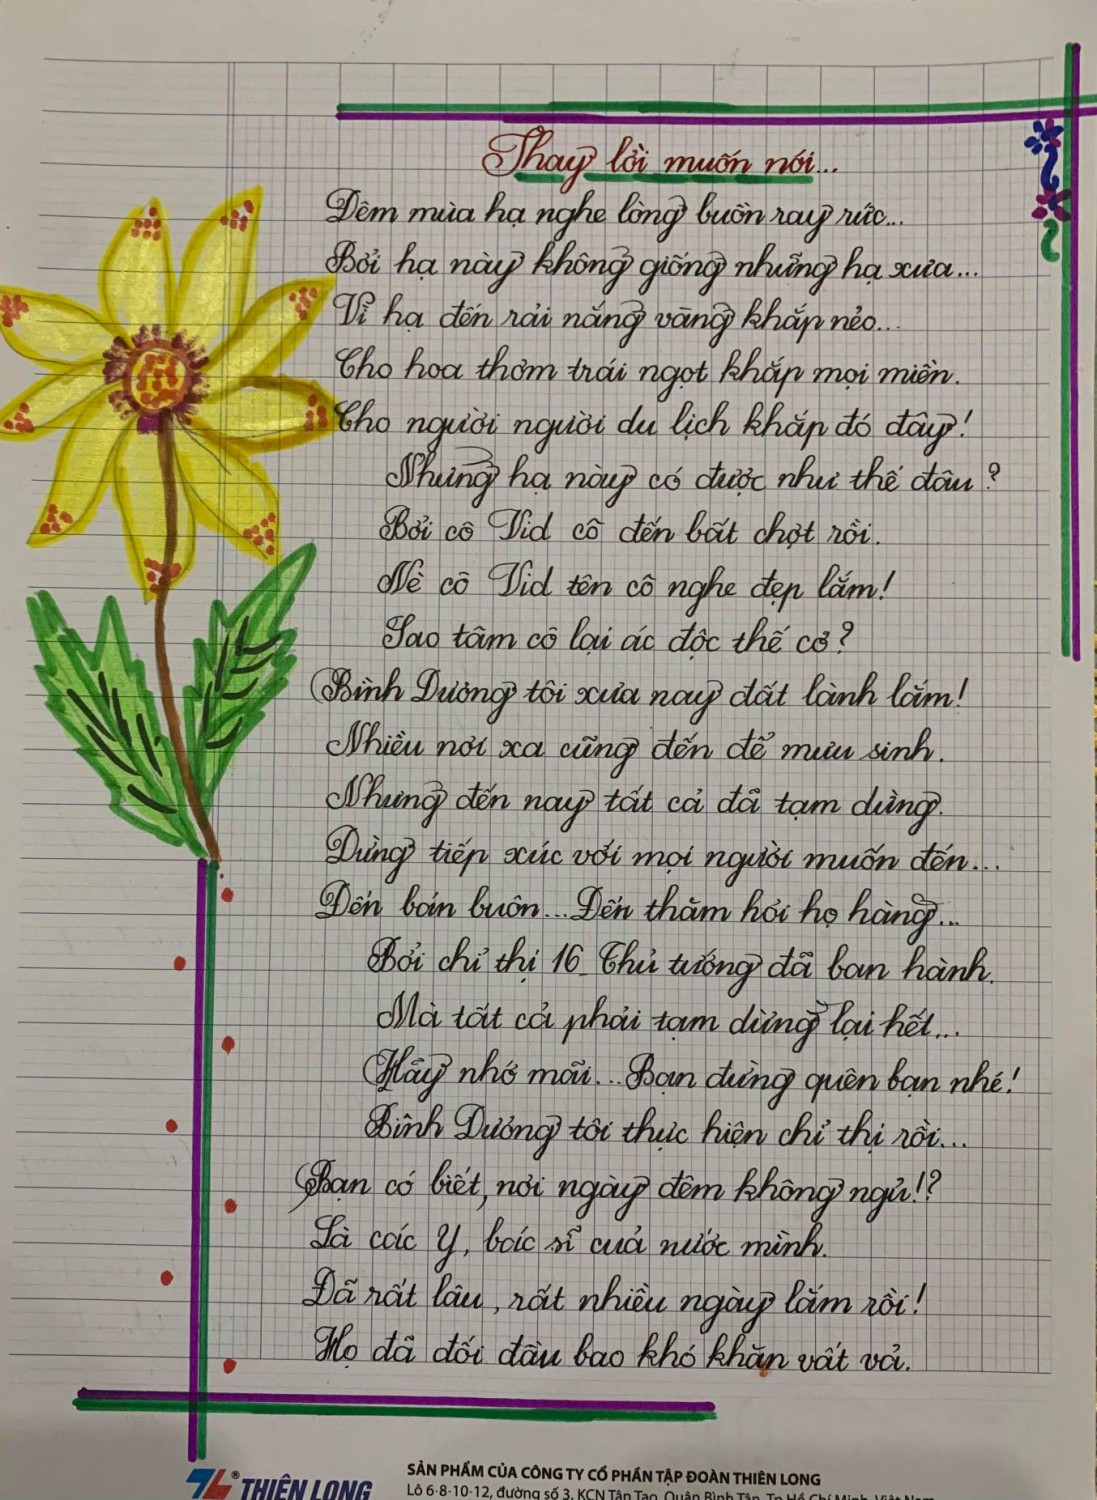 Thay lời muốn nói...
Đêm mùa hạ nghe lòng buồn ray rức...
Bởi hạ này không giống những hạ xưa...
Vì hạ đến rải nắng vàng khắp nẻo...
Cho hoa thơm trái ngọt khắp mọi miền.
Cho người người du lịch khắp đó đây!
Nhưng hạ này có được như thế đâu?
Bởi cô Vid cô đến bất chợt rồi.
Nè cô Vid tên cô nghe đẹp lắm!
Sao tâm cô lại ác độc thế cơ?
Bình Dương tôi xưa nay đất lành lắm!
Nhiều nơi xa cũng đến để mưu sinh.
Nhưng đến nay tất cả đã tạm dừng.
Dừng tiếp xúc với mọi người muốn đến...
Đến bán buôn... Đến thăm hỏi họ hàng...
Bởi chỉ thị 16 Thủ tướng đã ban hành.
Mà tất cả phải tạm dừng lại hết...
Hãy nhớ mãi... Bạn đừng quên bạn nhé!
Bình Dương tôi thực hiện chỉ thị rồi...
Bạn có biết, nơi ngày đêm không ngủ!?
Là các Y, bác sĩ cuả nước mình.
Đã rất lâu, rất nhiều ngày lắm rồi!
Họ đã đối đầu bao khó khăn vất vả.
THIÊN LONG
SẢN PHẨM CỦA CÔNG TY CỔ PHẦN TẬP ĐOÀN THIÊN LONG
Lô 6-8-10-12, đường số 3, KCN Tân Tạo, Quận Bình Tân, Tp Hồ Chí Minh, Việt Nam